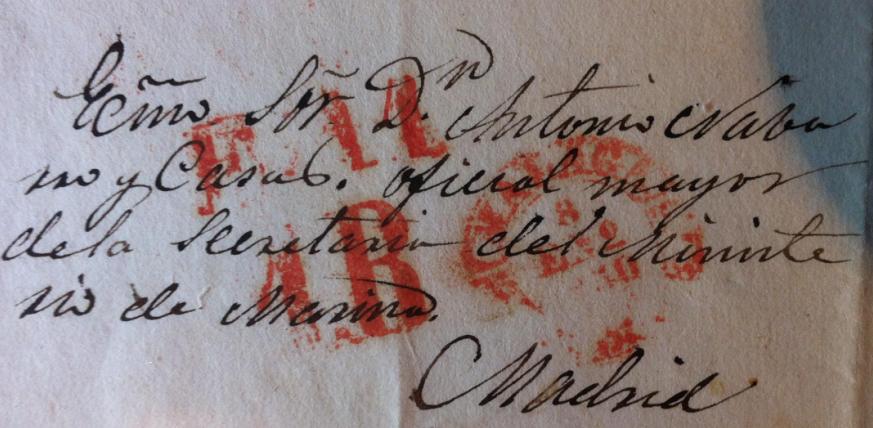 Ecmo Sor Dn Antonio Nava
rro y Casas. oficial mayor
de la Secretaria del Ministe
rio de Marina.
Madrid